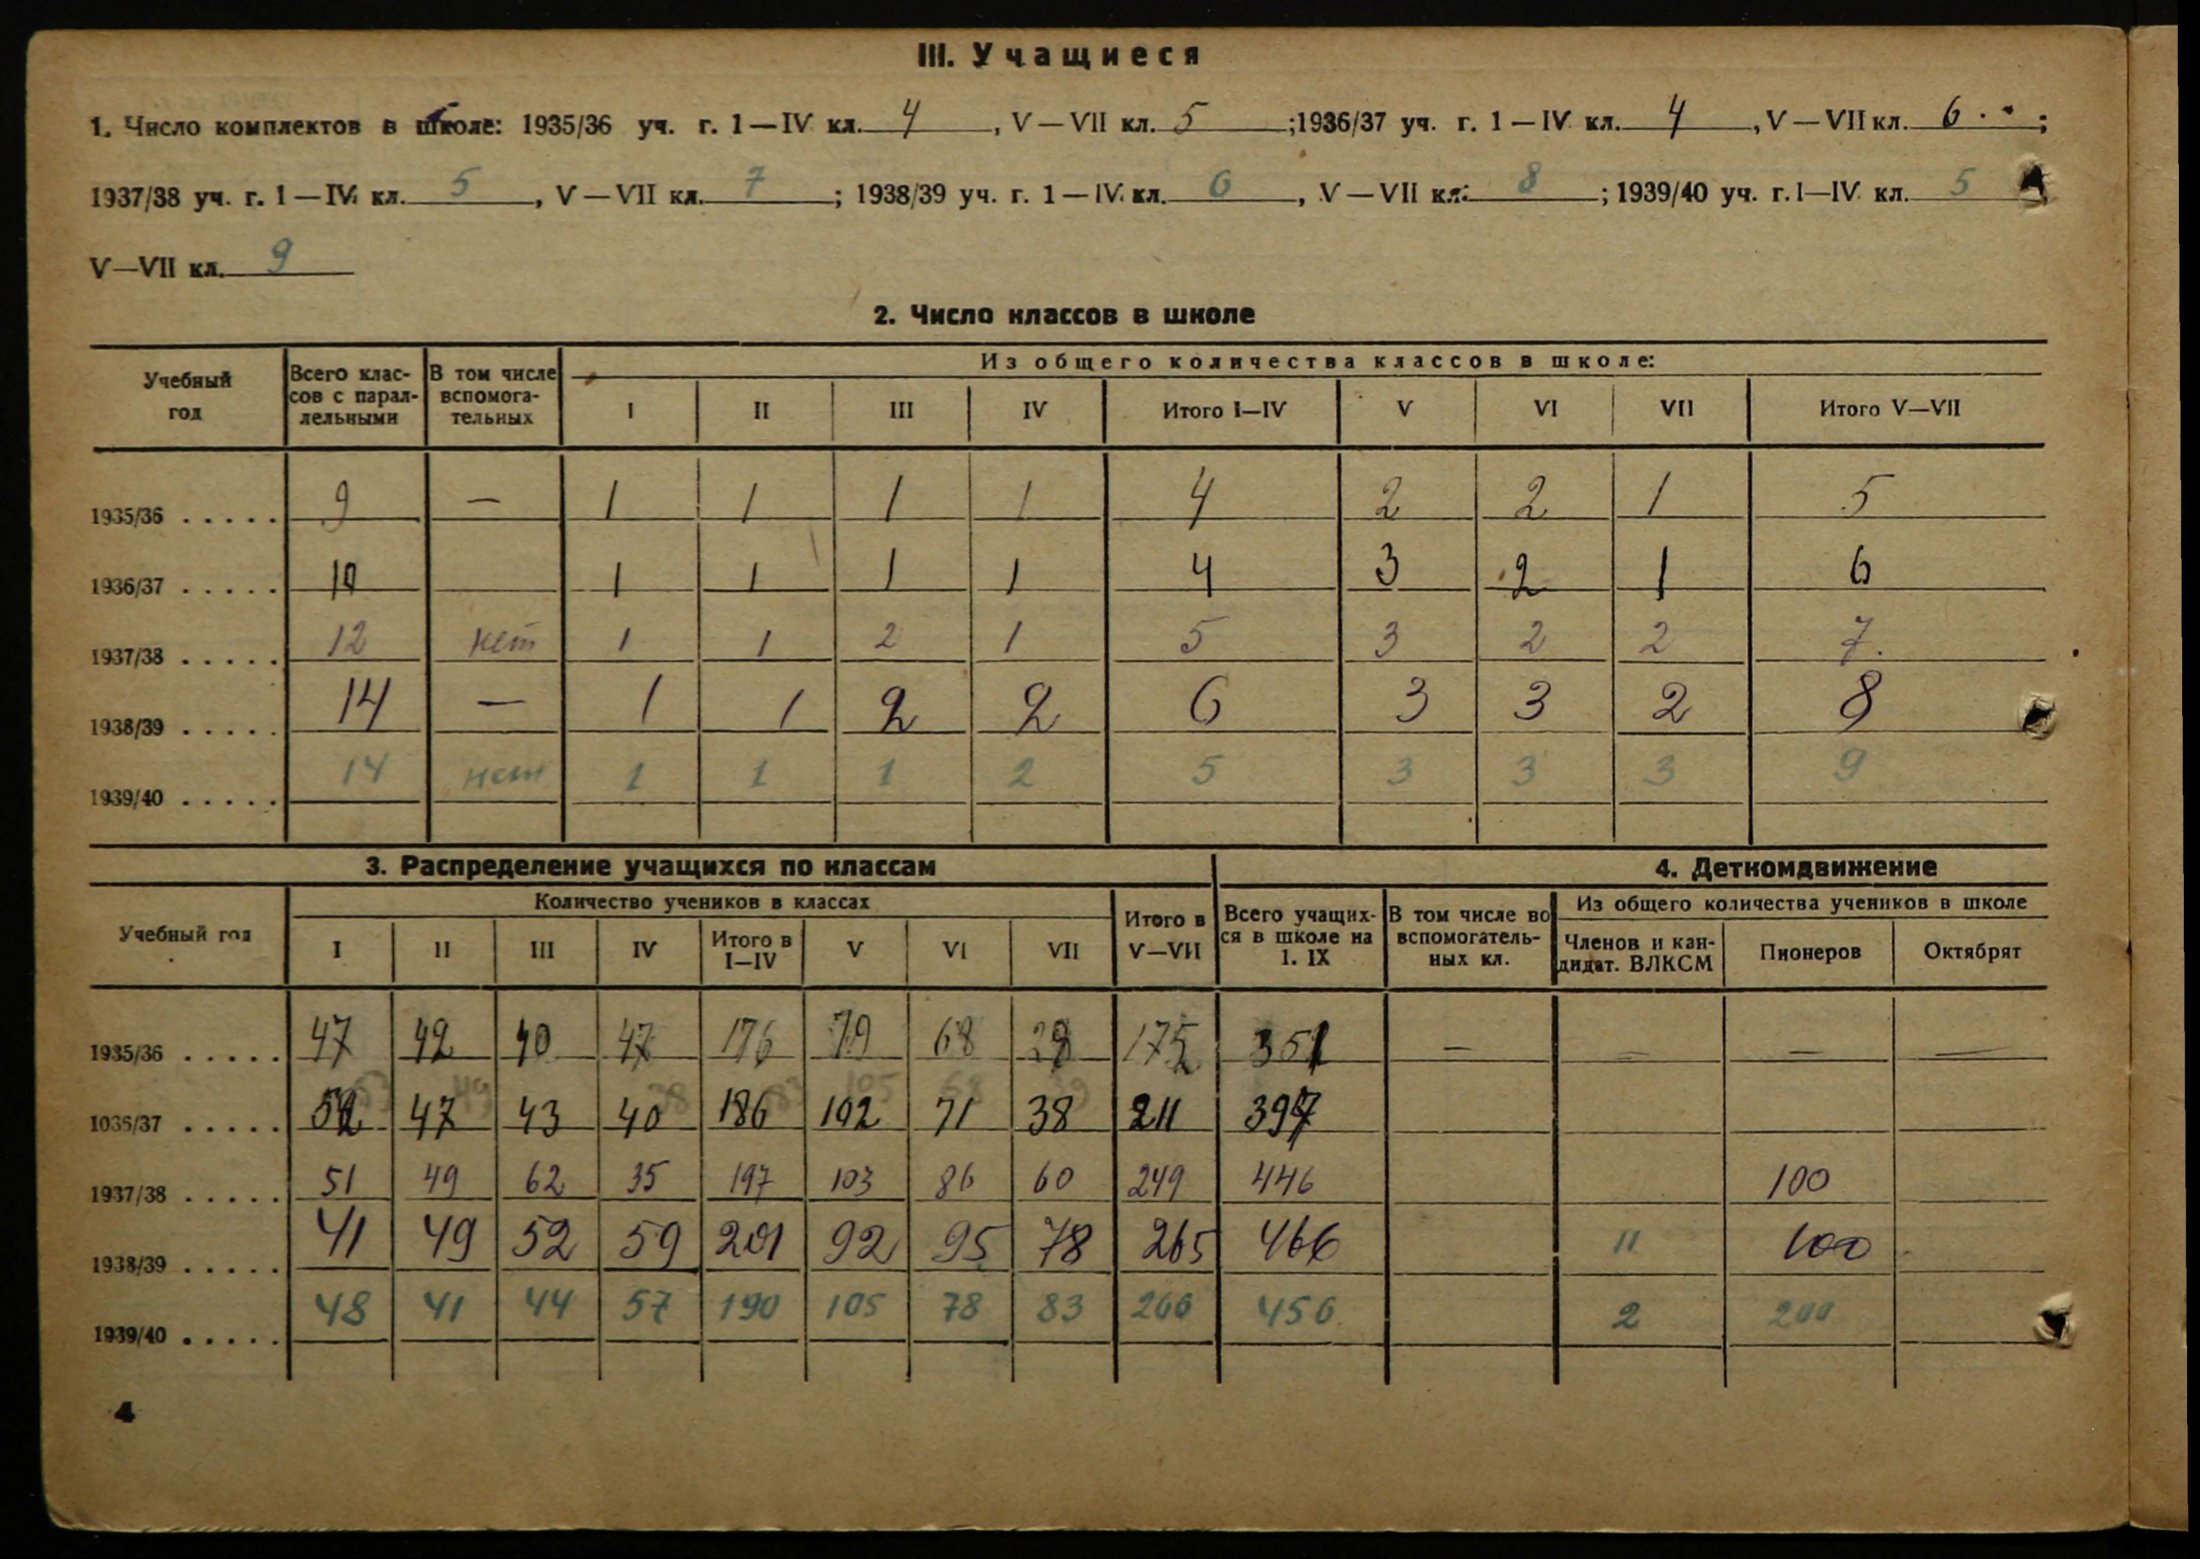 III. Учащиеся
1. Число комплектов в школе: 1935/36 уч. г. 1—IV кл. 4, V—VII кл. 5; 1936/37 уч. г. 1—IV кл. 4, V—VII кл. 6;
1937/38 уч. г. 1—IV кл. 5, V—VII кл. 7; 1938/39 уч. г. 1—IV кл. 6, V—VII кл. 8; 1939/40 уч. г. I—IV кл. 5,
V—VII кл. 9
2. Число классов в школе
Учебный год | Всего классов с параллельными | В том числе вспомогательных | Из общего количества классов в школе:
I | II | III | IV | Итого I—IV | V | VI | VII | Итого V—VII
1935/36 ..... 9 — 1 1 1 1 4 2 2 1 5
1936/37 ..... 10 1 1 1 1 4 3 2 1 6
1937/38 ..... 12 нет 1 1 2 1 5 3 2 2 7.
1938/39 ..... 14 — 1 1 2 2 6 3 3 2 8
1939/40 ..... 14 нет 1 1 1 2 5 3 3 3 9
3. Распределение учащихся по классам
4. Деткомдвижение
Учебный год | Количество учеников в классах | Итого в V—VII | Всего учащихся в школе на 1. IX | В том числе во вспомогательных кл. | Из общего количества учеников в школе
I | II | III | IV | Итого в I—IV | V | VI | VII | Членов и кандидат. ВЛКСМ | Пионеров | Октябрят
1935/36 ..... 47 42 40 47 176 79 68 28 175 351 — — — —
1036/37 ..... 52 47 43 40 186 102 71 38 211 397
1937/38 ..... 51 49 62 35 197 103 86 60 249 446 100
1938/39 ..... 41 49 52 59 201 92 95 78 265 466 11 100
1939/40 ..... 48 41 44 57 190 105 78 83 266 456 2 200
4